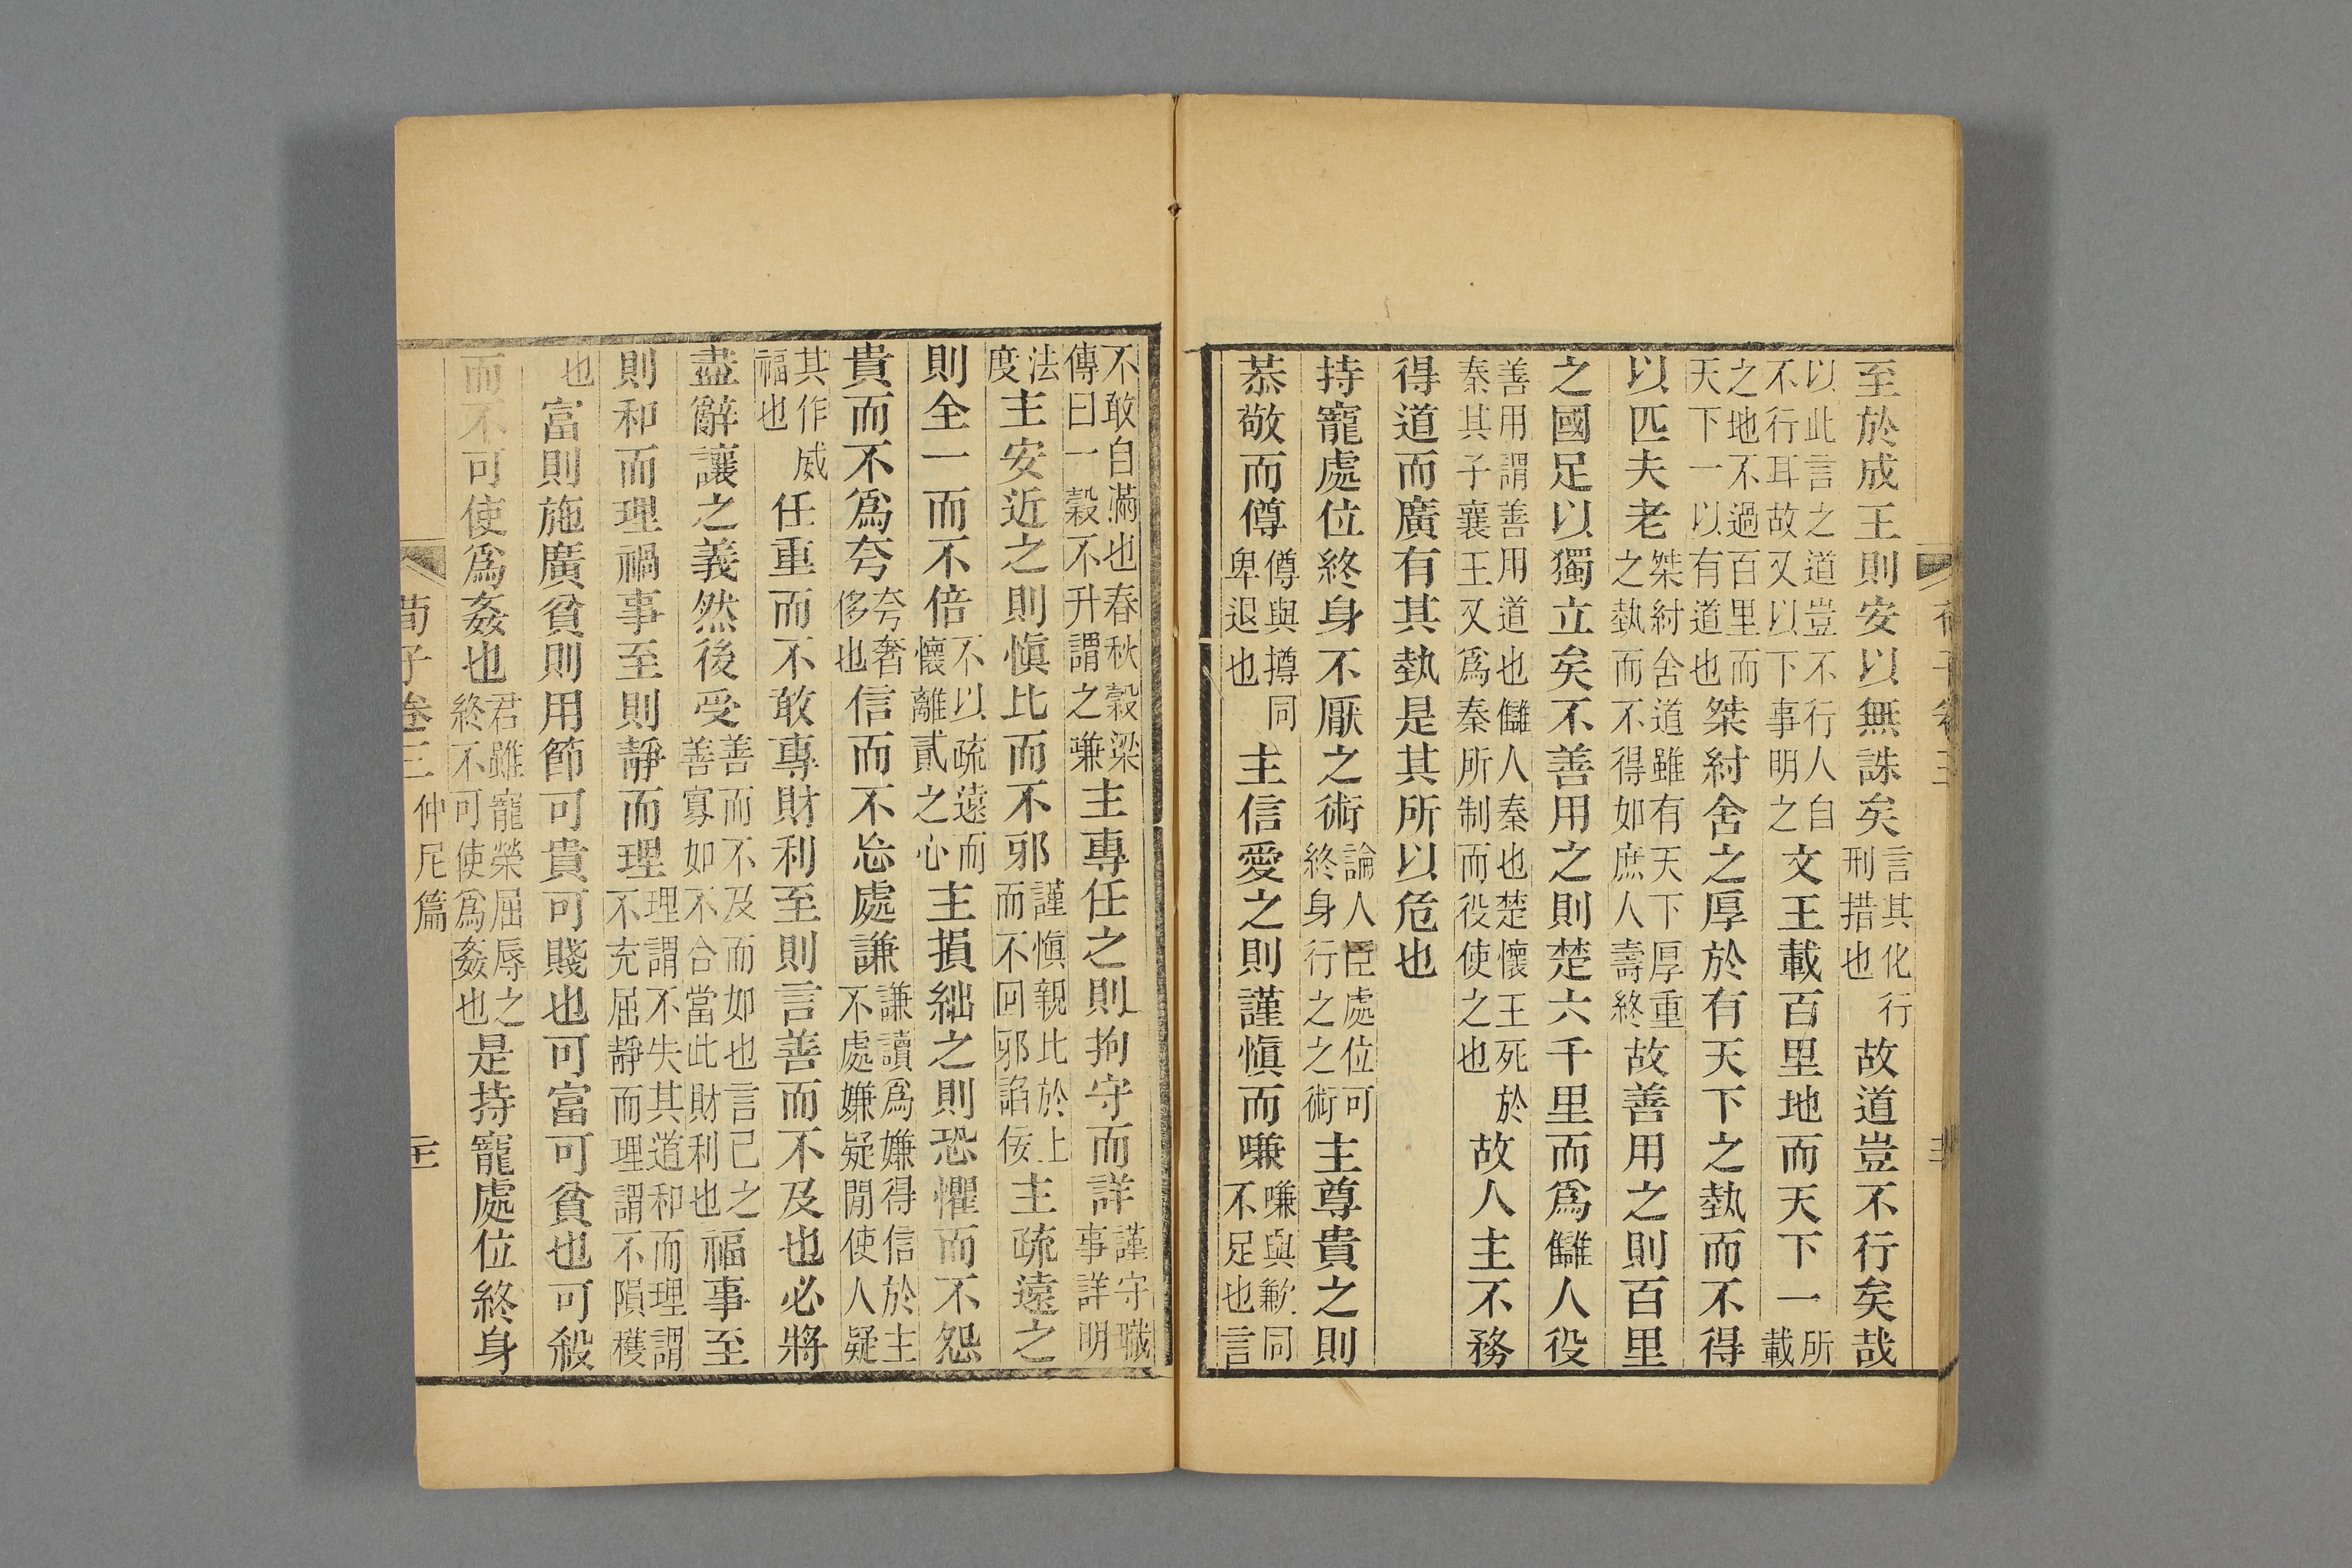 至於成王則安以無誅矣言其化行刑措也故道豈不行矣哉
以此言之道豈不行人自不行耳故又以下事明之文王載百里地而天下一所載
之地不過百里而天下一以有道也桀紂舍之厚於有天下之埶而不得
以匹夫老桀紂舍道雖有天下厚重之埶而不得如庶人壽終故善用之則百里
之國足以獨立矣不善用之則楚六千里而爲讎人役
善用謂善用道也讎人秦也楚懷王死於秦其子襄王又爲秦所制而役使之也故人主不務
得道而廣有其埶是其所以危也
持寵處位終身不厭之術論人臣處位可終身行之之術主尊貴之則
恭敬而僔僔與撙同卑退也主信愛之則謹愼而嗛嗛與歉同不足也言
不敢自滿也春秋穀梁傳曰一穀不升謂之嗛主專任之則拘守而詳謹守職事詳明
法度主安近之則愼比而不邪謹愼親比於上而不回邪諂佞主疏遠之
則全一而不倍不以疏遠而懷離貳之心主損絀之則恐懼而不怨
貴而不爲夸夸奢侈也信而不忘處謙謙讀爲嫌得信於主不處嫌疑閒使人疑
其作威福也任重而不敢專財利至則言善而不及也必將
盡辭讓之義然後受善而不及而如也言己之善寡如不合當此財利也福事至
則和而理禍事至則靜而理理謂不失其道和而理謂不充屈靜而理謂不隕穫
也富則施廣貧則用節可貴可賤也可富可貧也可殺
而不可使爲姦也君雖寵榮屈辱之終不可使爲姦也是持寵處位終身
荀子卷三 仲尼篇